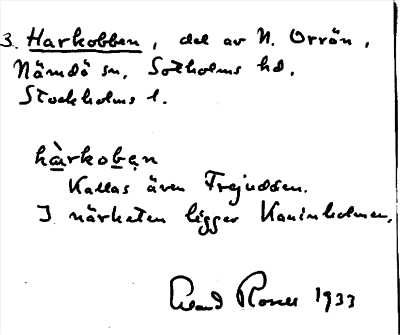 3. Harkobben, del av N. Orrön,
Nämdö sn. Sotholms hd.
Stockholms l.
hàrkobe̥n
Kallas även Frejudden.
I närheten ligger Kaninholmen.
1933